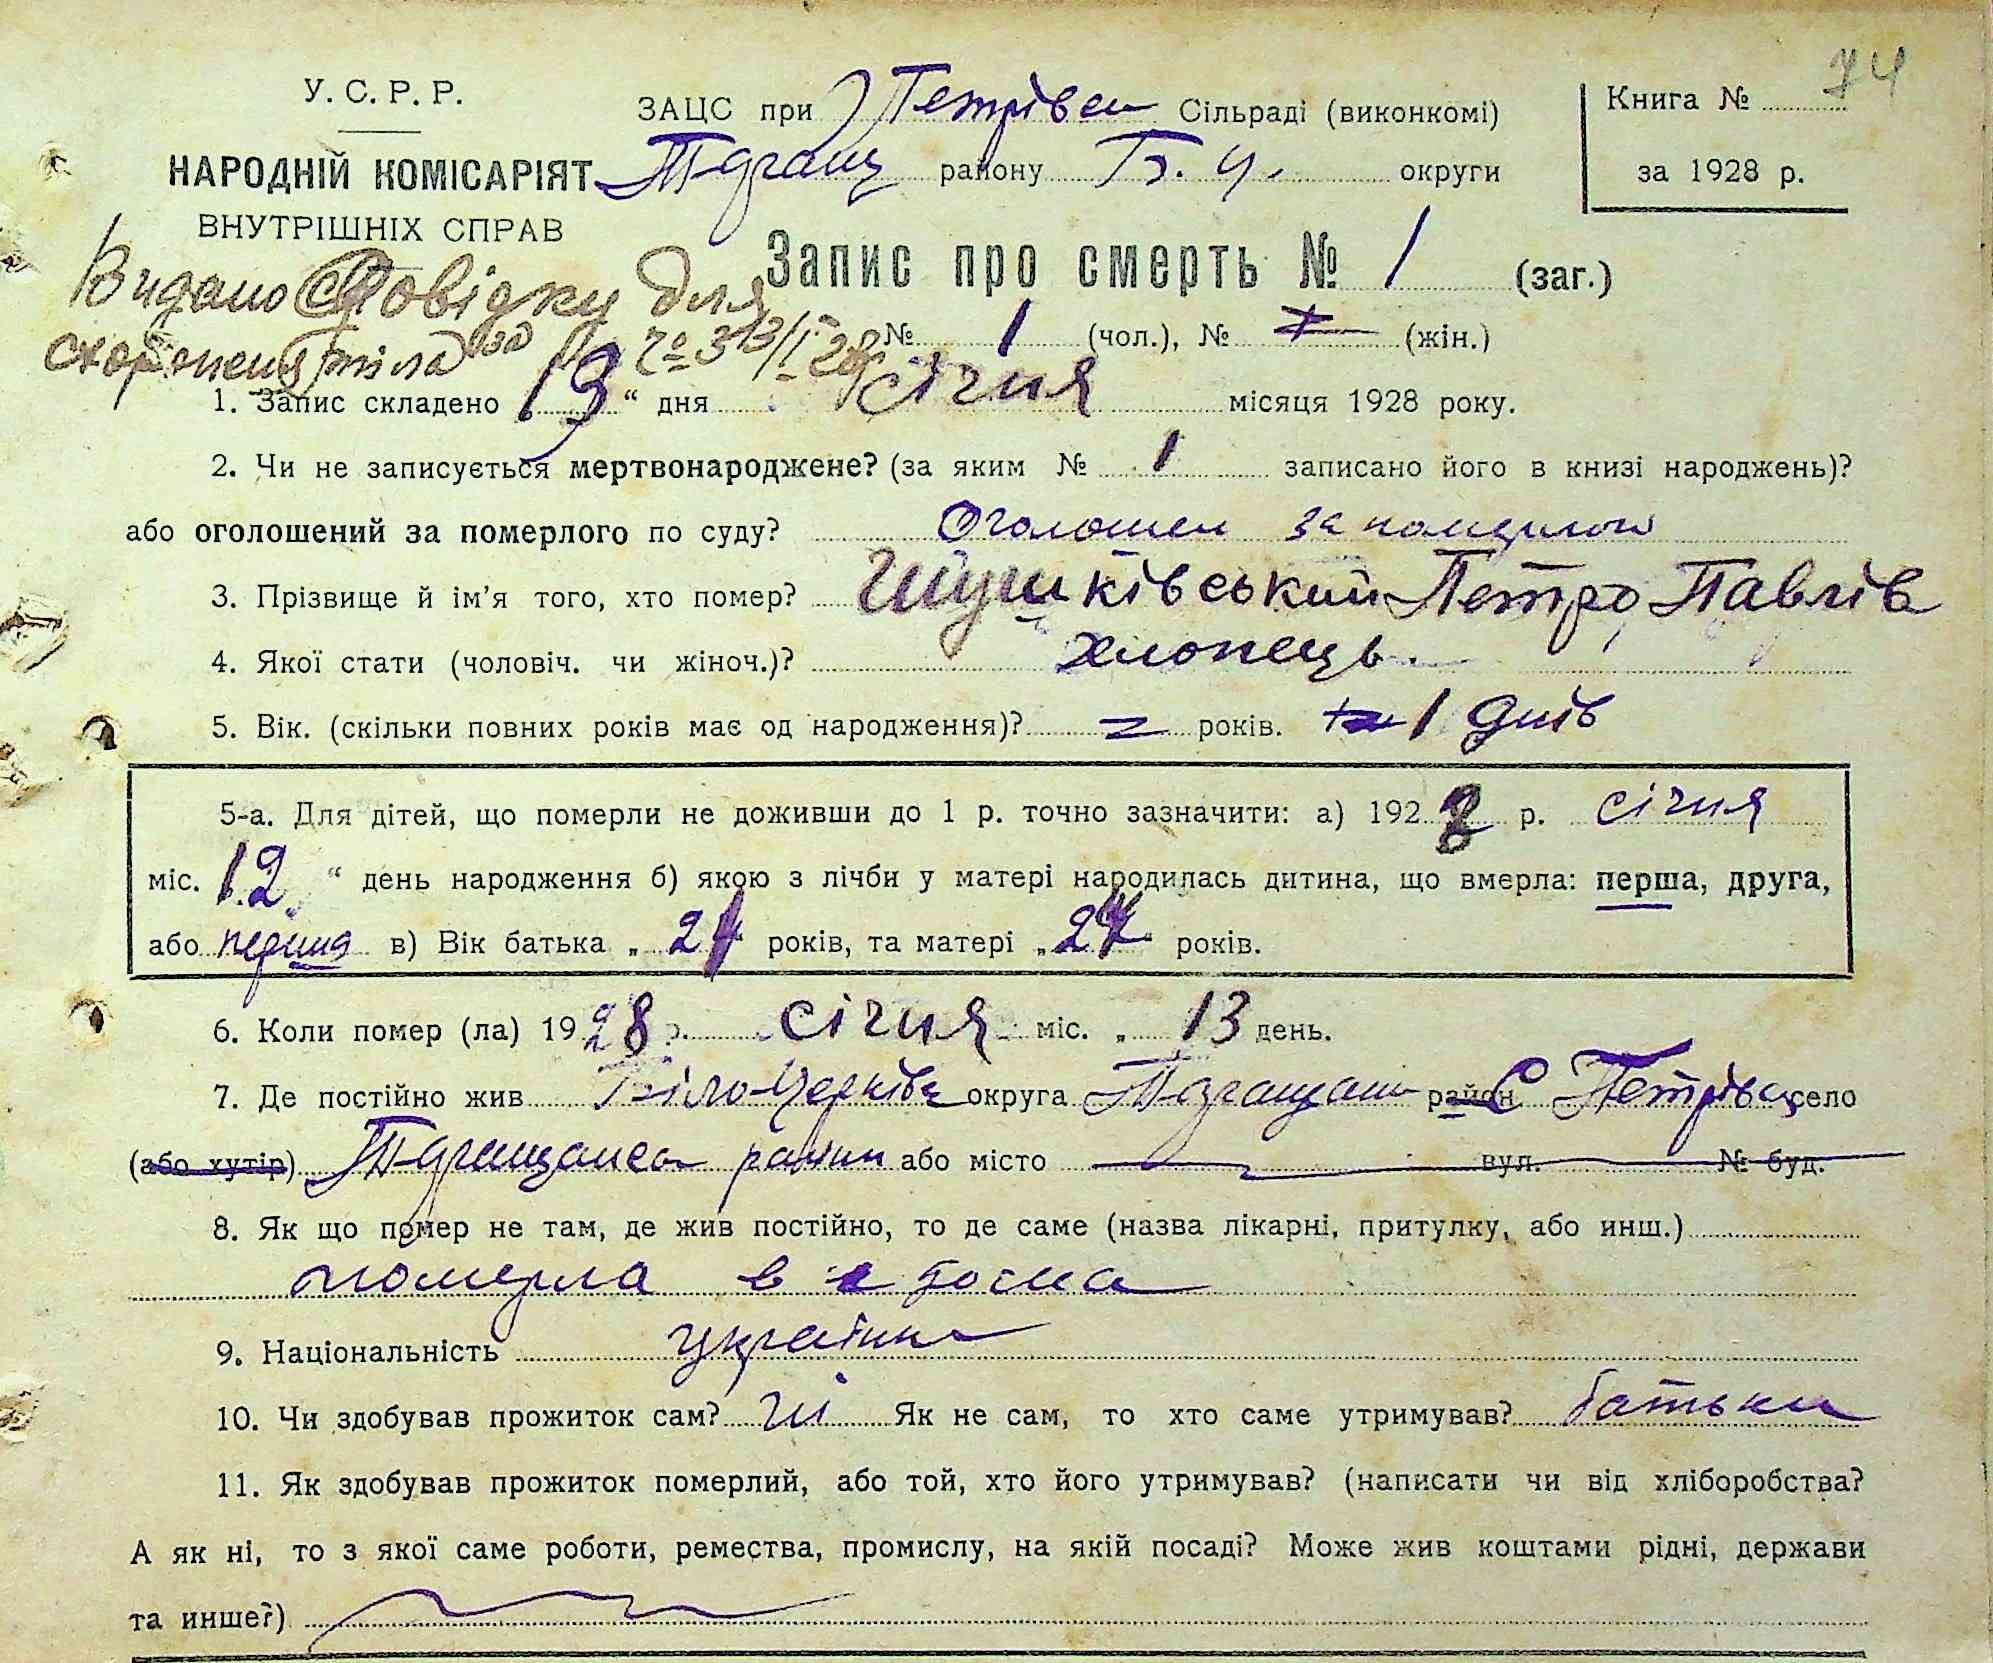 74
У. С. Р. Р.
ЗАЦС при Петрівен Сільраді (виконкомі)
Книга №
НАРОДНІЙ КОМІСАРІЯТ
Таращ району Б. Ц. округи
за 1928 р.
ВНУТРІШНІХ СПРАВ
Видано Довідку для
Запис про смерть № 1 (заг.)
тіла за № 3 13/I 28
№ 1 (чол.), № (жін.)
1. Запис складено „13“ дня січня місяця 1928 року.
2. Чи не записується мертвонароджене? (за яким № 1 записано його в книзі народжень)?
або оголошений за померлого по суду? Оголошен за
3. Прізвище й ім'я того, хто помер? Петро Павлів
4. Якої стати (чоловіч. чи жіноч.)? хлопець.
5. Вік. (скільки повних років має од народження)? років. 1 днів
5-а. Для дітей, що померли не доживши до 1 р. точно зазначити: а) 1928 р. січня
міс. „12“ день народження б) якою з лічби у матері народилась дитина, що вмерла: перша, друга,
або перша в) Вік батька „24“ років, та матері „24“ років.
6. Коли помер (ла) 1928 р. січня міс. „13 день.
7. Де постійно жив Біло-Церківс округа Таращан район С Петрівц село
(або хутір) район або місто вул. № буд.
8. Як що помер не там, де жив постійно, то де саме (назва лікарні, притулку, або инш.)
померла в
9. Національність україн
10. Чи здобував прожиток сам? ні Як не сам, то хто саме утримував? батьки
11. Як здобував прожиток померлий, або той, хто його утримував? (написати чи від хліборобства?
А як ні, то з якої саме роботи, ремества, промислу, на якій посаді? Може жив коштами рідні, держави
та инше?)